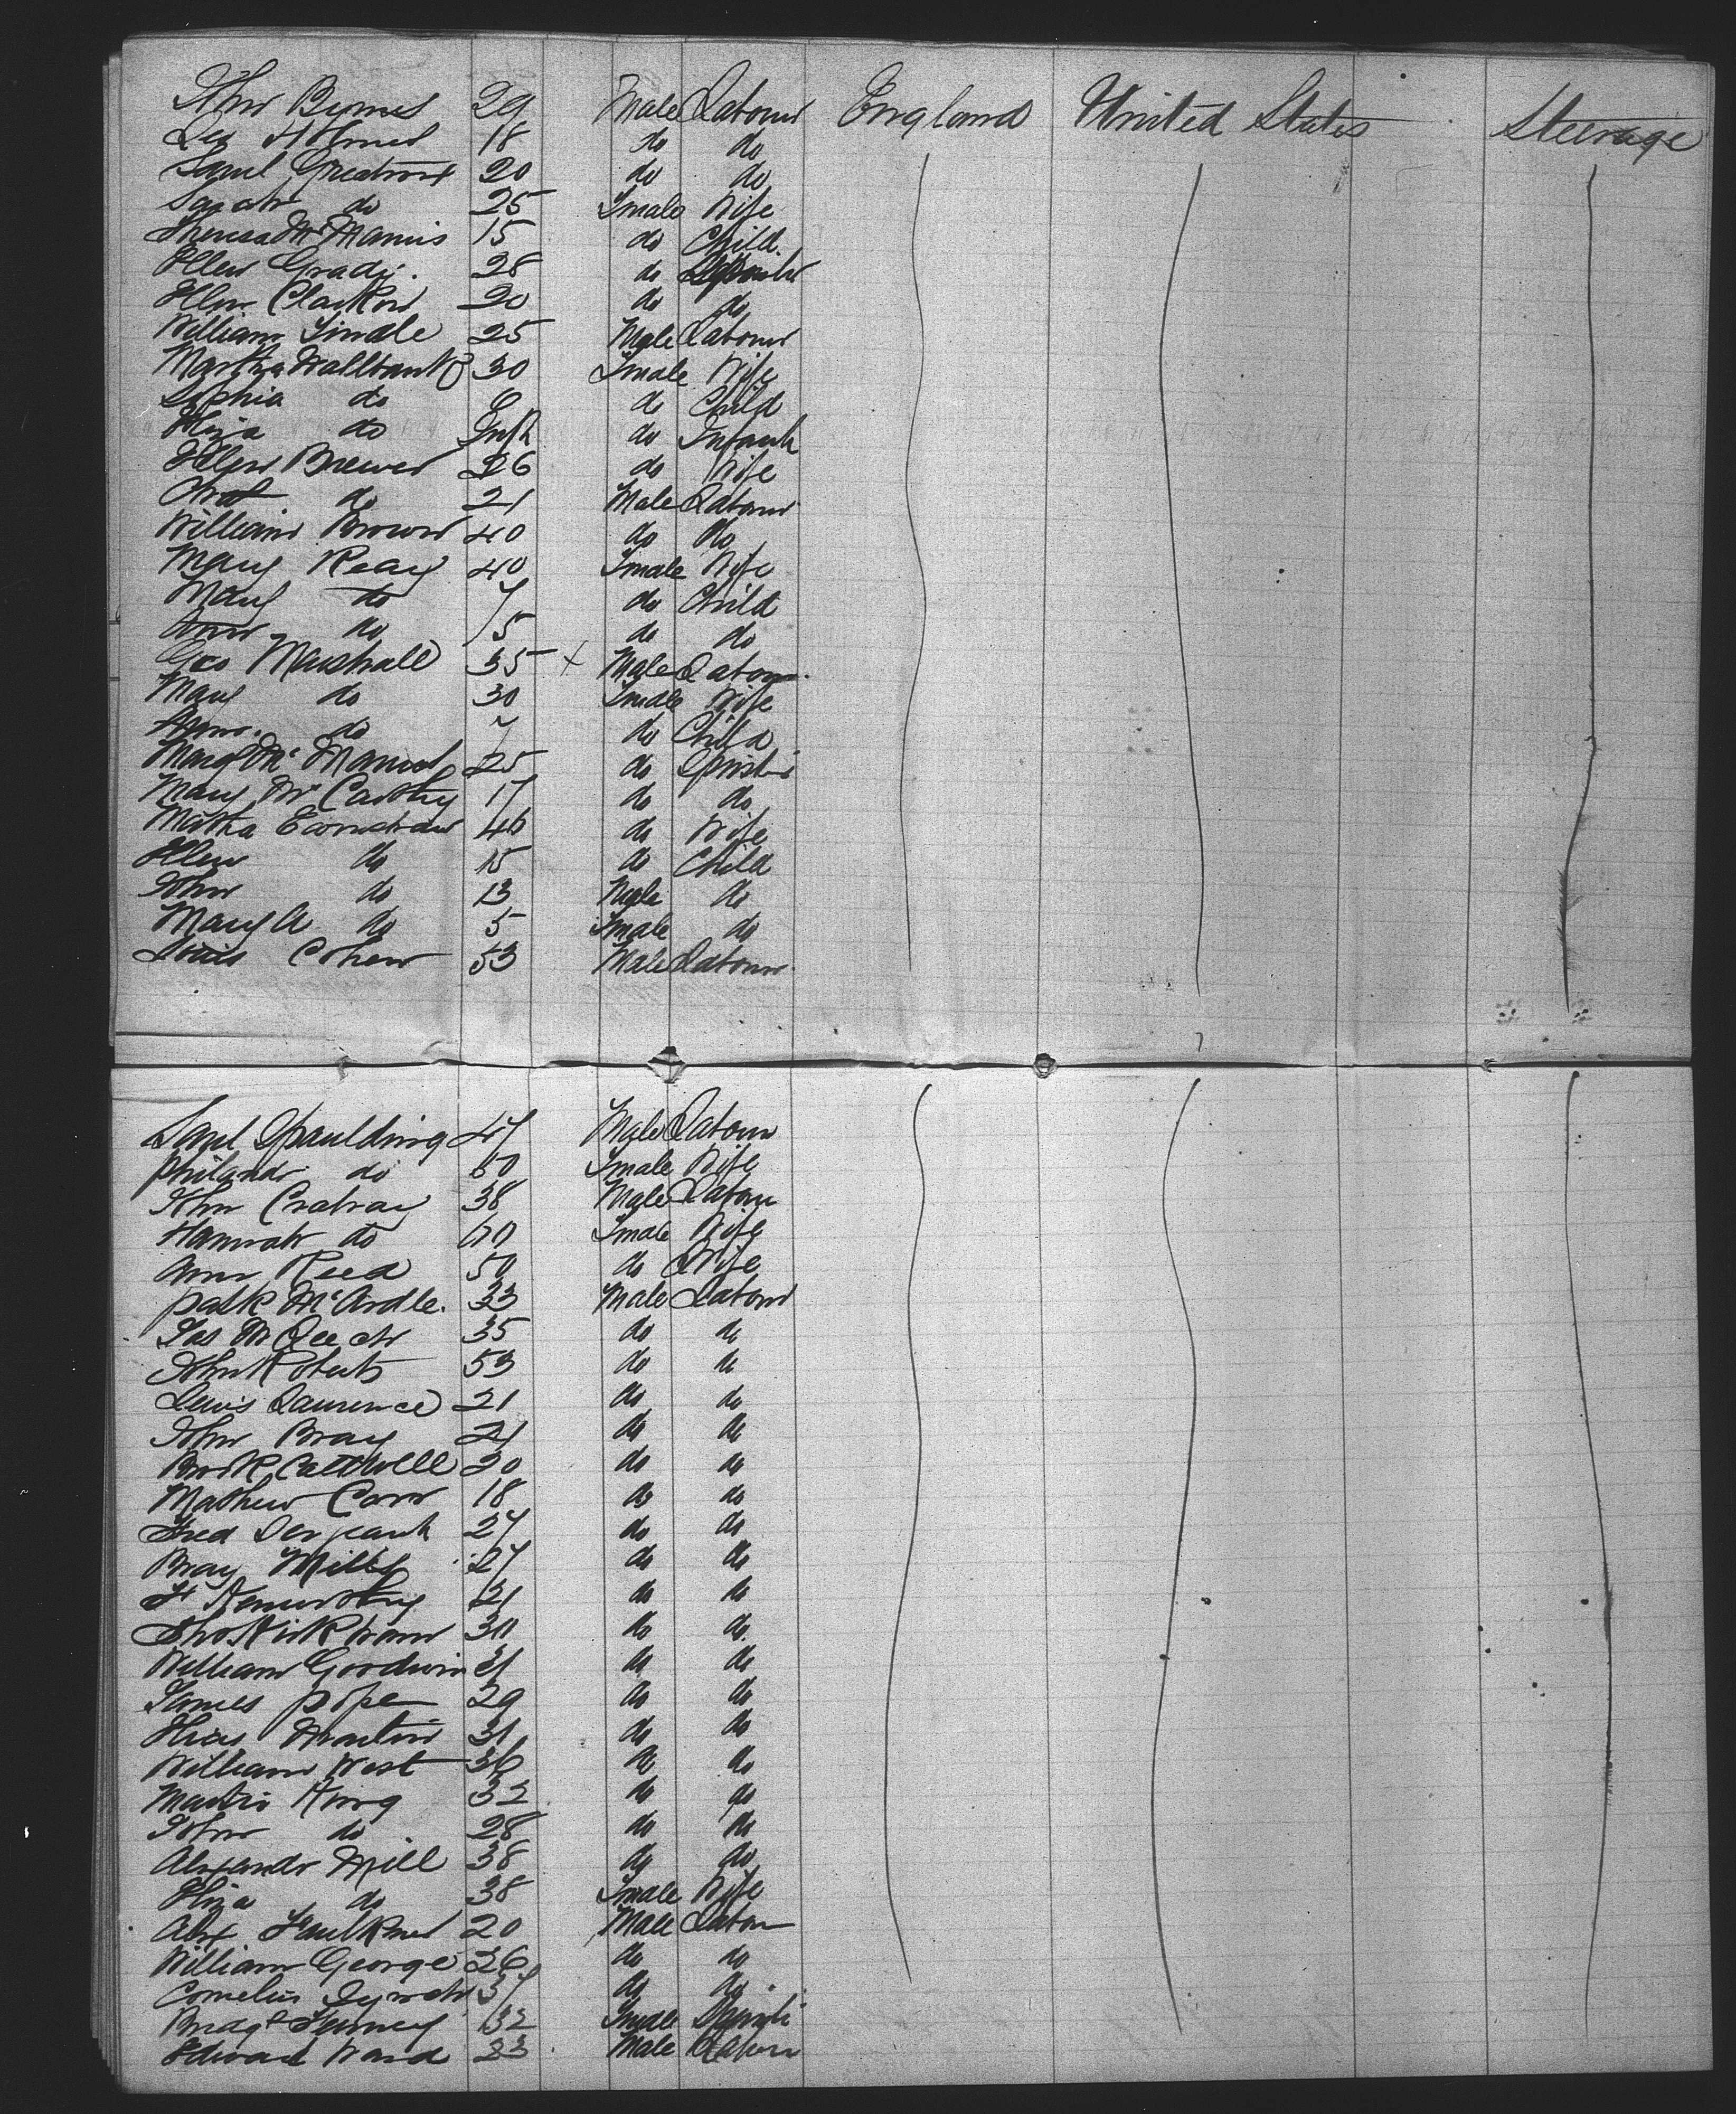 John Byrnes 29 Male Labour England United States Steerage
Geo Holmes 18 do do
Saml Greatrex 20 do do
Sarah do 25 Fmale Wife
Theresa McManus 15 do Child
Ellen Grady. 28 do Spinster
Ellen Clarkon 20 do do
William Lindle 25 Male Labour
Martha Wallbank 30 Fmale Wife
Sophia do 6 do Child
Eliza do Inft do Infant
Ellen Brewer 26 do Wife
do 21 Male Labour
William Brown 40 do do
Mary Reay 40 Fmale Wife
Mary do 7 do Child
Ann do 5 do do
Geo Marshall 35 x Male Labour
Mary do 30 Fmale Wife
Ann. do 7 do Child
Mary McManus 25 do Spinster
Mary McCarthy 17 do do
Martha Earnshaw 46 do Wife
Ellen do 15 do Child
John do 13 Male do
Mary A do 5 Fmale do
Louis Cohen 53 Male Labour
Saml Spaulding 47 Male Labour
Philandr do 50 Fmale Wife
John Crabray 38 Male Labour
Hannah do Fmale Wife
Ann Reed 50 do Wife
Patk McArdle. 33 Male Labour
Jas McLeech 35 do do
John Roberts 53 do do
Lewis Laurence 21 do do
John Bray 21 do do
Cattwell 20 do do
Mathew Carr 18 do do
Fred Serjeant 27 do do
Bray Mills 27 do do
Kenworthy 21 do do
Kirkham 30 do do
William Goodwin 21 do do
James Pope 29 do do
Martin 31 do do
William West 36 do do
Martin King 32 do do
John do 28 do do
Alexandr Mill 38 do do
Eliza do 38 Fmale Wife
Alex Faulkner 20 Male Labour
William George 26 do do
Cornelius Lynch 37 do do
Bridgt Feeney 32 Fmale
Edward Ward 23 Male Labour